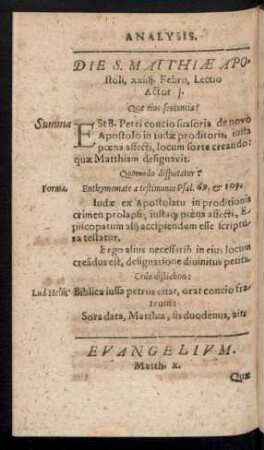 ANALYSIS.
DIE S. MATTHIÆ APO-
stoli, xxiiij. Febru, Lectio
Actor j.
Quæ eius sententia?
Summa ESt B. Petri concio suasoria de novo
Apostolo in Iudæ proditoris, iusta
pœna affecti, locum sorte creando:
quæ Matthiam designavit.
Quomodo disputatur?
Forma. Enthymemate a testimonio Psal. 69. & 109.
Iudæ ex Apostolatu in proditionis
crimen prolapsi, iustaq; pœna affecti, E-
piscopatum aliū accipiendum esse scriptu
ra testatur.
Ergo alius necessariò in eius locum
creādus est, designatione divinitus petita.
distichon:
Lud. Helm. Biblica iussa petrus citat, orat concio fra-
trum:
Sors data, Matthia, sis duodenus, ait.
EVANGELIVM.
Matth. x.
Quæ